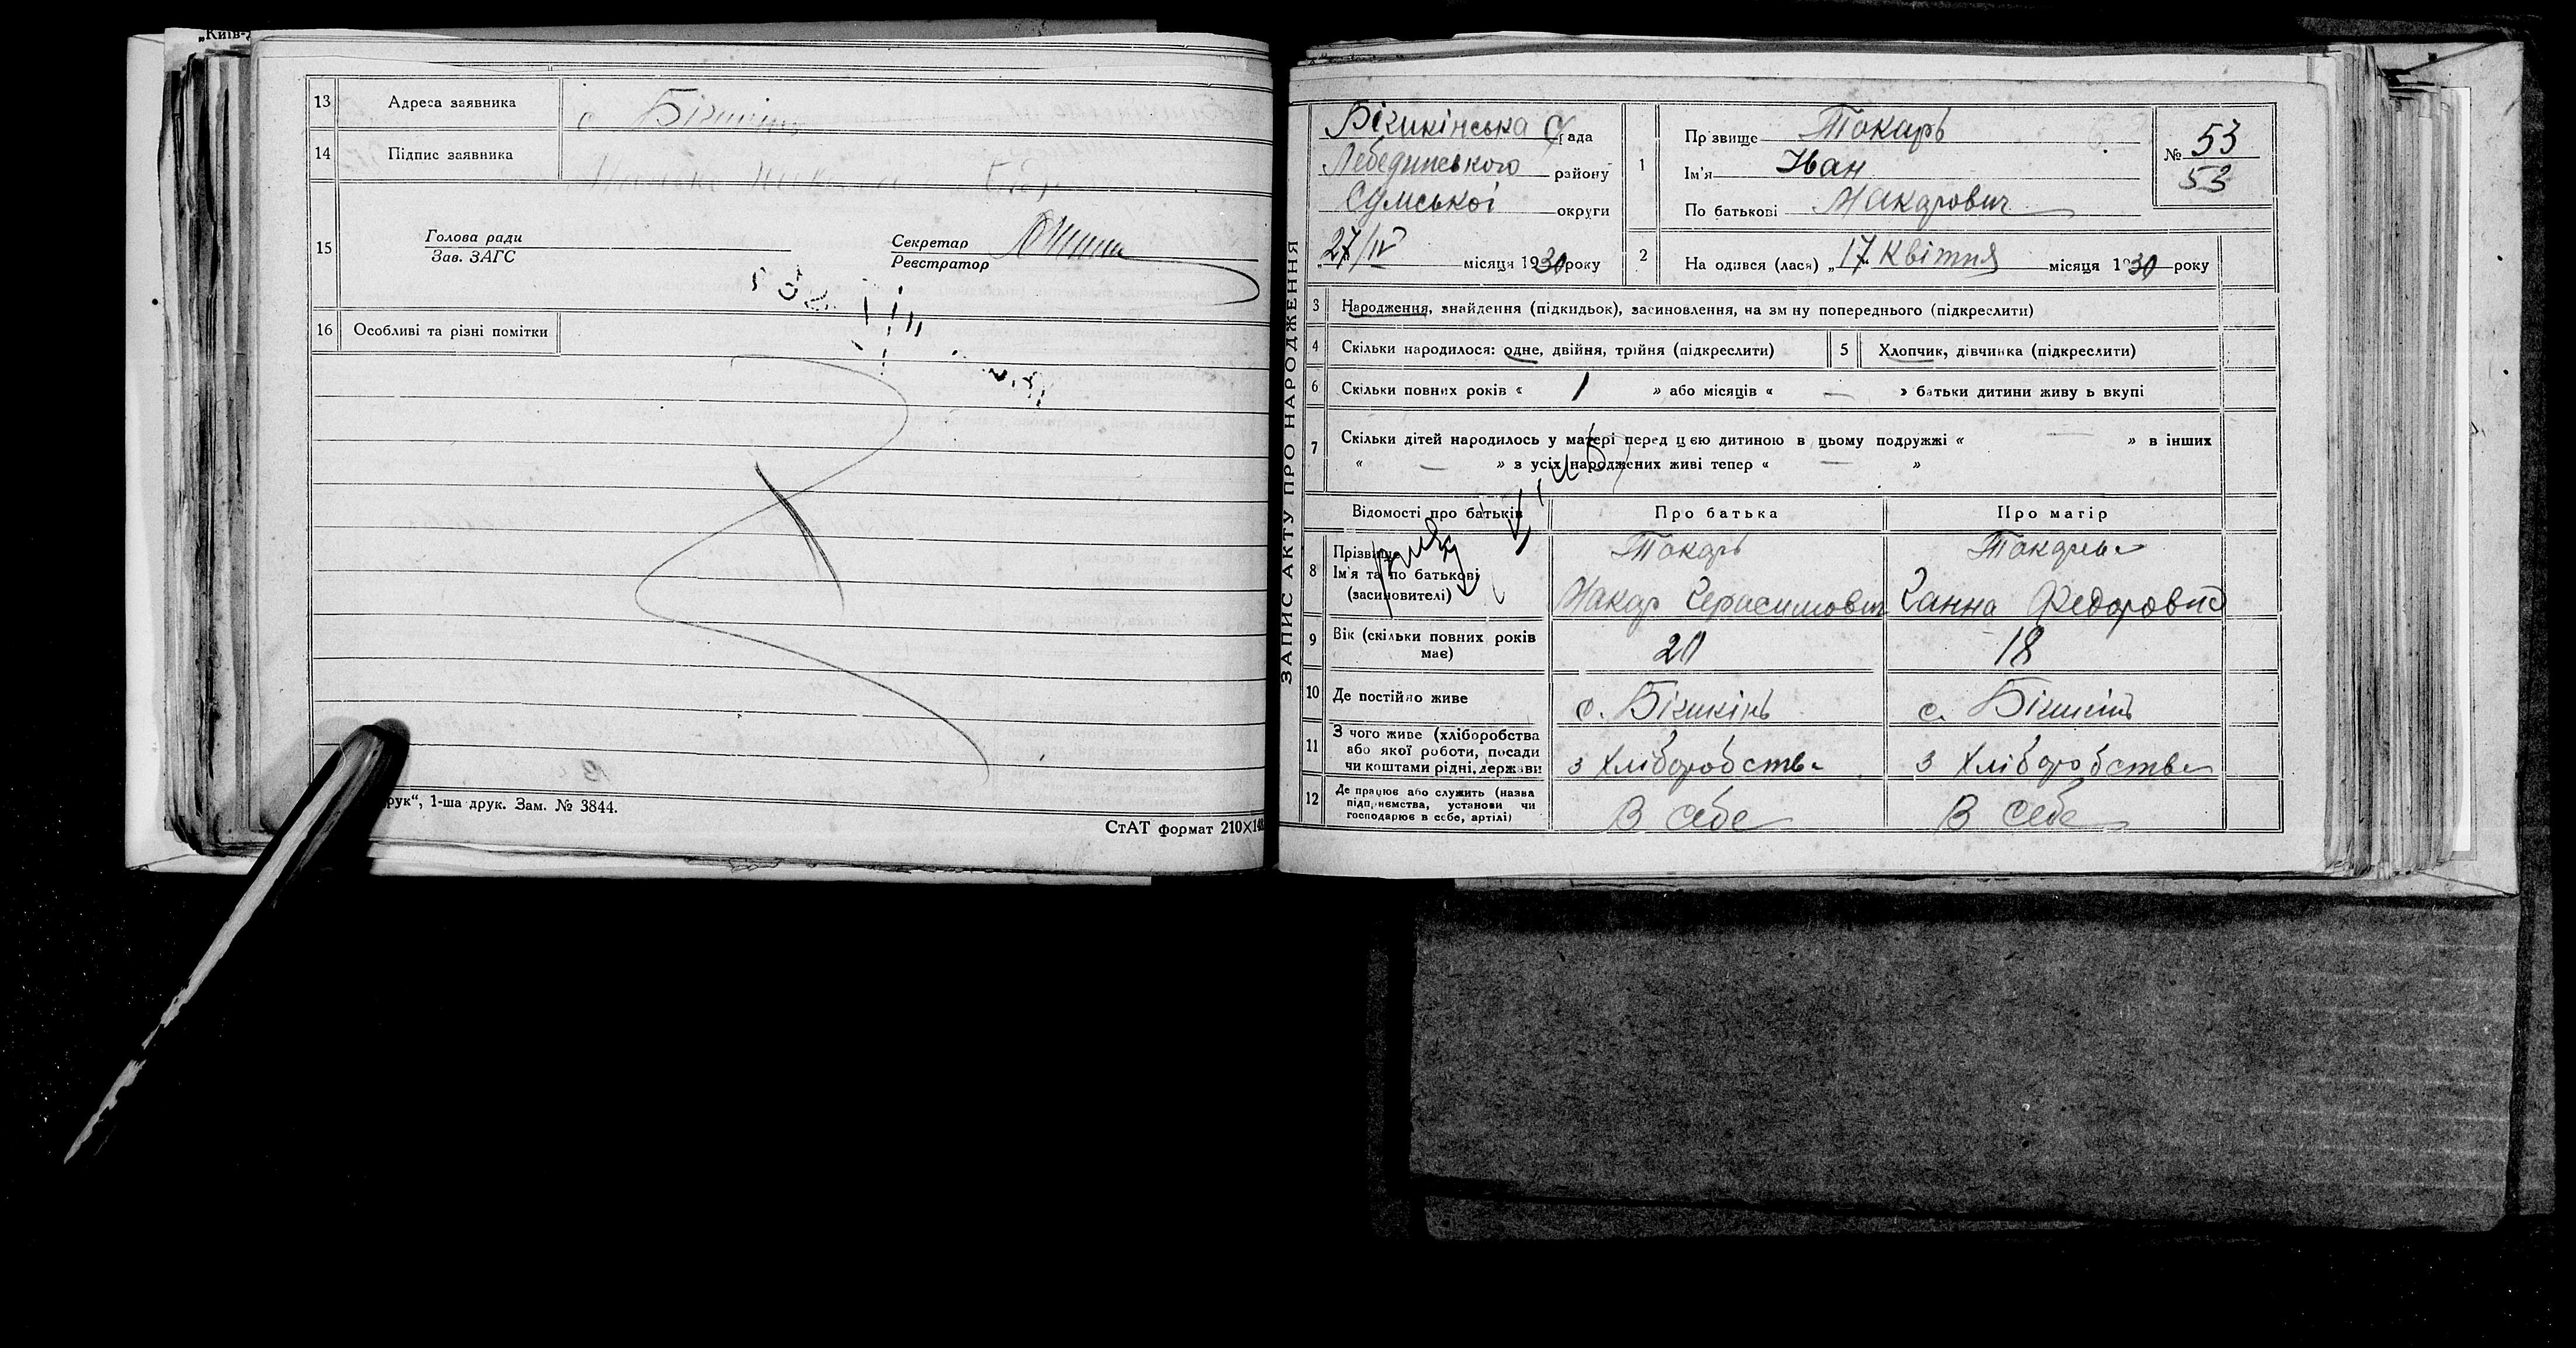 „Київ-
13 Адреса заявника с Бішкінь
14 Підпис заявника
15 Голова ради Секретар
Зав. ЗАГС Реєстратор
16 Особливі та різні помітки
рук“, 1-ша друк. Зам. № 3844.
СтАТ формат 210×148
ЗАПИС АКТУ ПРО НАРОДЖЕННЯ
Бішкінська с/рада
Лебединського району
Сумської округи
„27/IV місяця 1930 року
1 Пр звище Токарь
Ім'я Іван
По батькові Макарович
№ 53
53
2 На одився (лася) „17 Квітня місяця 1930 року
3 Народження, знайдення (підкидьок), засиновлення, на зм ну попереднього (підкреслити)
4 Скільки народилося: одне, двійня, трійня (підкреслити) 5 Хлопчик, дівчинка (підкреслити)
6 Скільки повних років « 1 » або місяців « — » батьки дитини живу ь вкупі
7 Скільки дітей народилось у матері перед цією дитиною в цьому подружжі « — » в інших
« — » з усіх народжених живі тепер « — »
Відомості про батьків Про батька Про матір
8 Прізвище Токарь
Ім'я та по батькові
(засиновителі) Макар Герасимович Ганна Федоровна
9 Вік (скільки повних років має) 20 18
10 Де постійно живе с. Бішкінь с. Бішкінь
11 З чого живе (хліборобства
або якої роботи, посади
чи коштами рідні, держави з Хліборобства з Хліборобства
12 Де працює або служить (назва
підприємства, установи чи
господарює в себе, артілі) В себе В себе